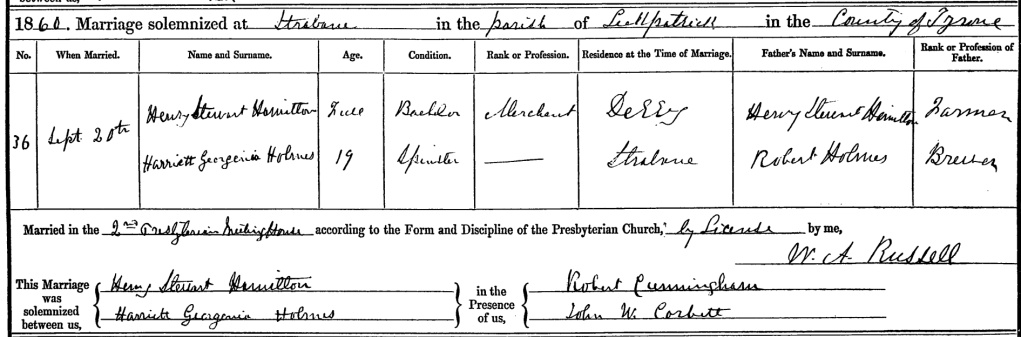 1860. Marriage solemnized at Strabane in the parish of Leckpatrick in the County of Tyrone
No. When Married. Name and Surname. Age. Condition. Rank or Profession. Residence at the Time of Marriage. Father's Name and Surname. Rank or Profession of Father.
36 Sept 20th Henry Stewart Hamilton Full Bachelor Merchant Derry Henry Stewart Hamilton Farmer
Harriett Georgenia Holmes 19 Spinster — Strabane Robert Holmes Brewer
Married in the 2nd Presbyterian Meeting House according to the Form and Discipline of the Presbyterian Church, by License by me,
W. A. Russell
This Marriage was solemnized between us, Henry Stewart Hamilton
Harriett Georgenia Holmes
in the Presence of us, Robert Cunningham
John W. Corbett